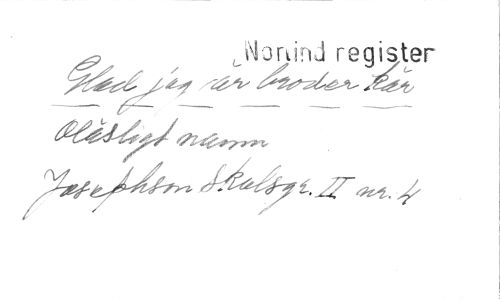 Norlind register
Glad jag är broder kär
Oläsligt namn
Josephson Skolsgr. II nr. 4